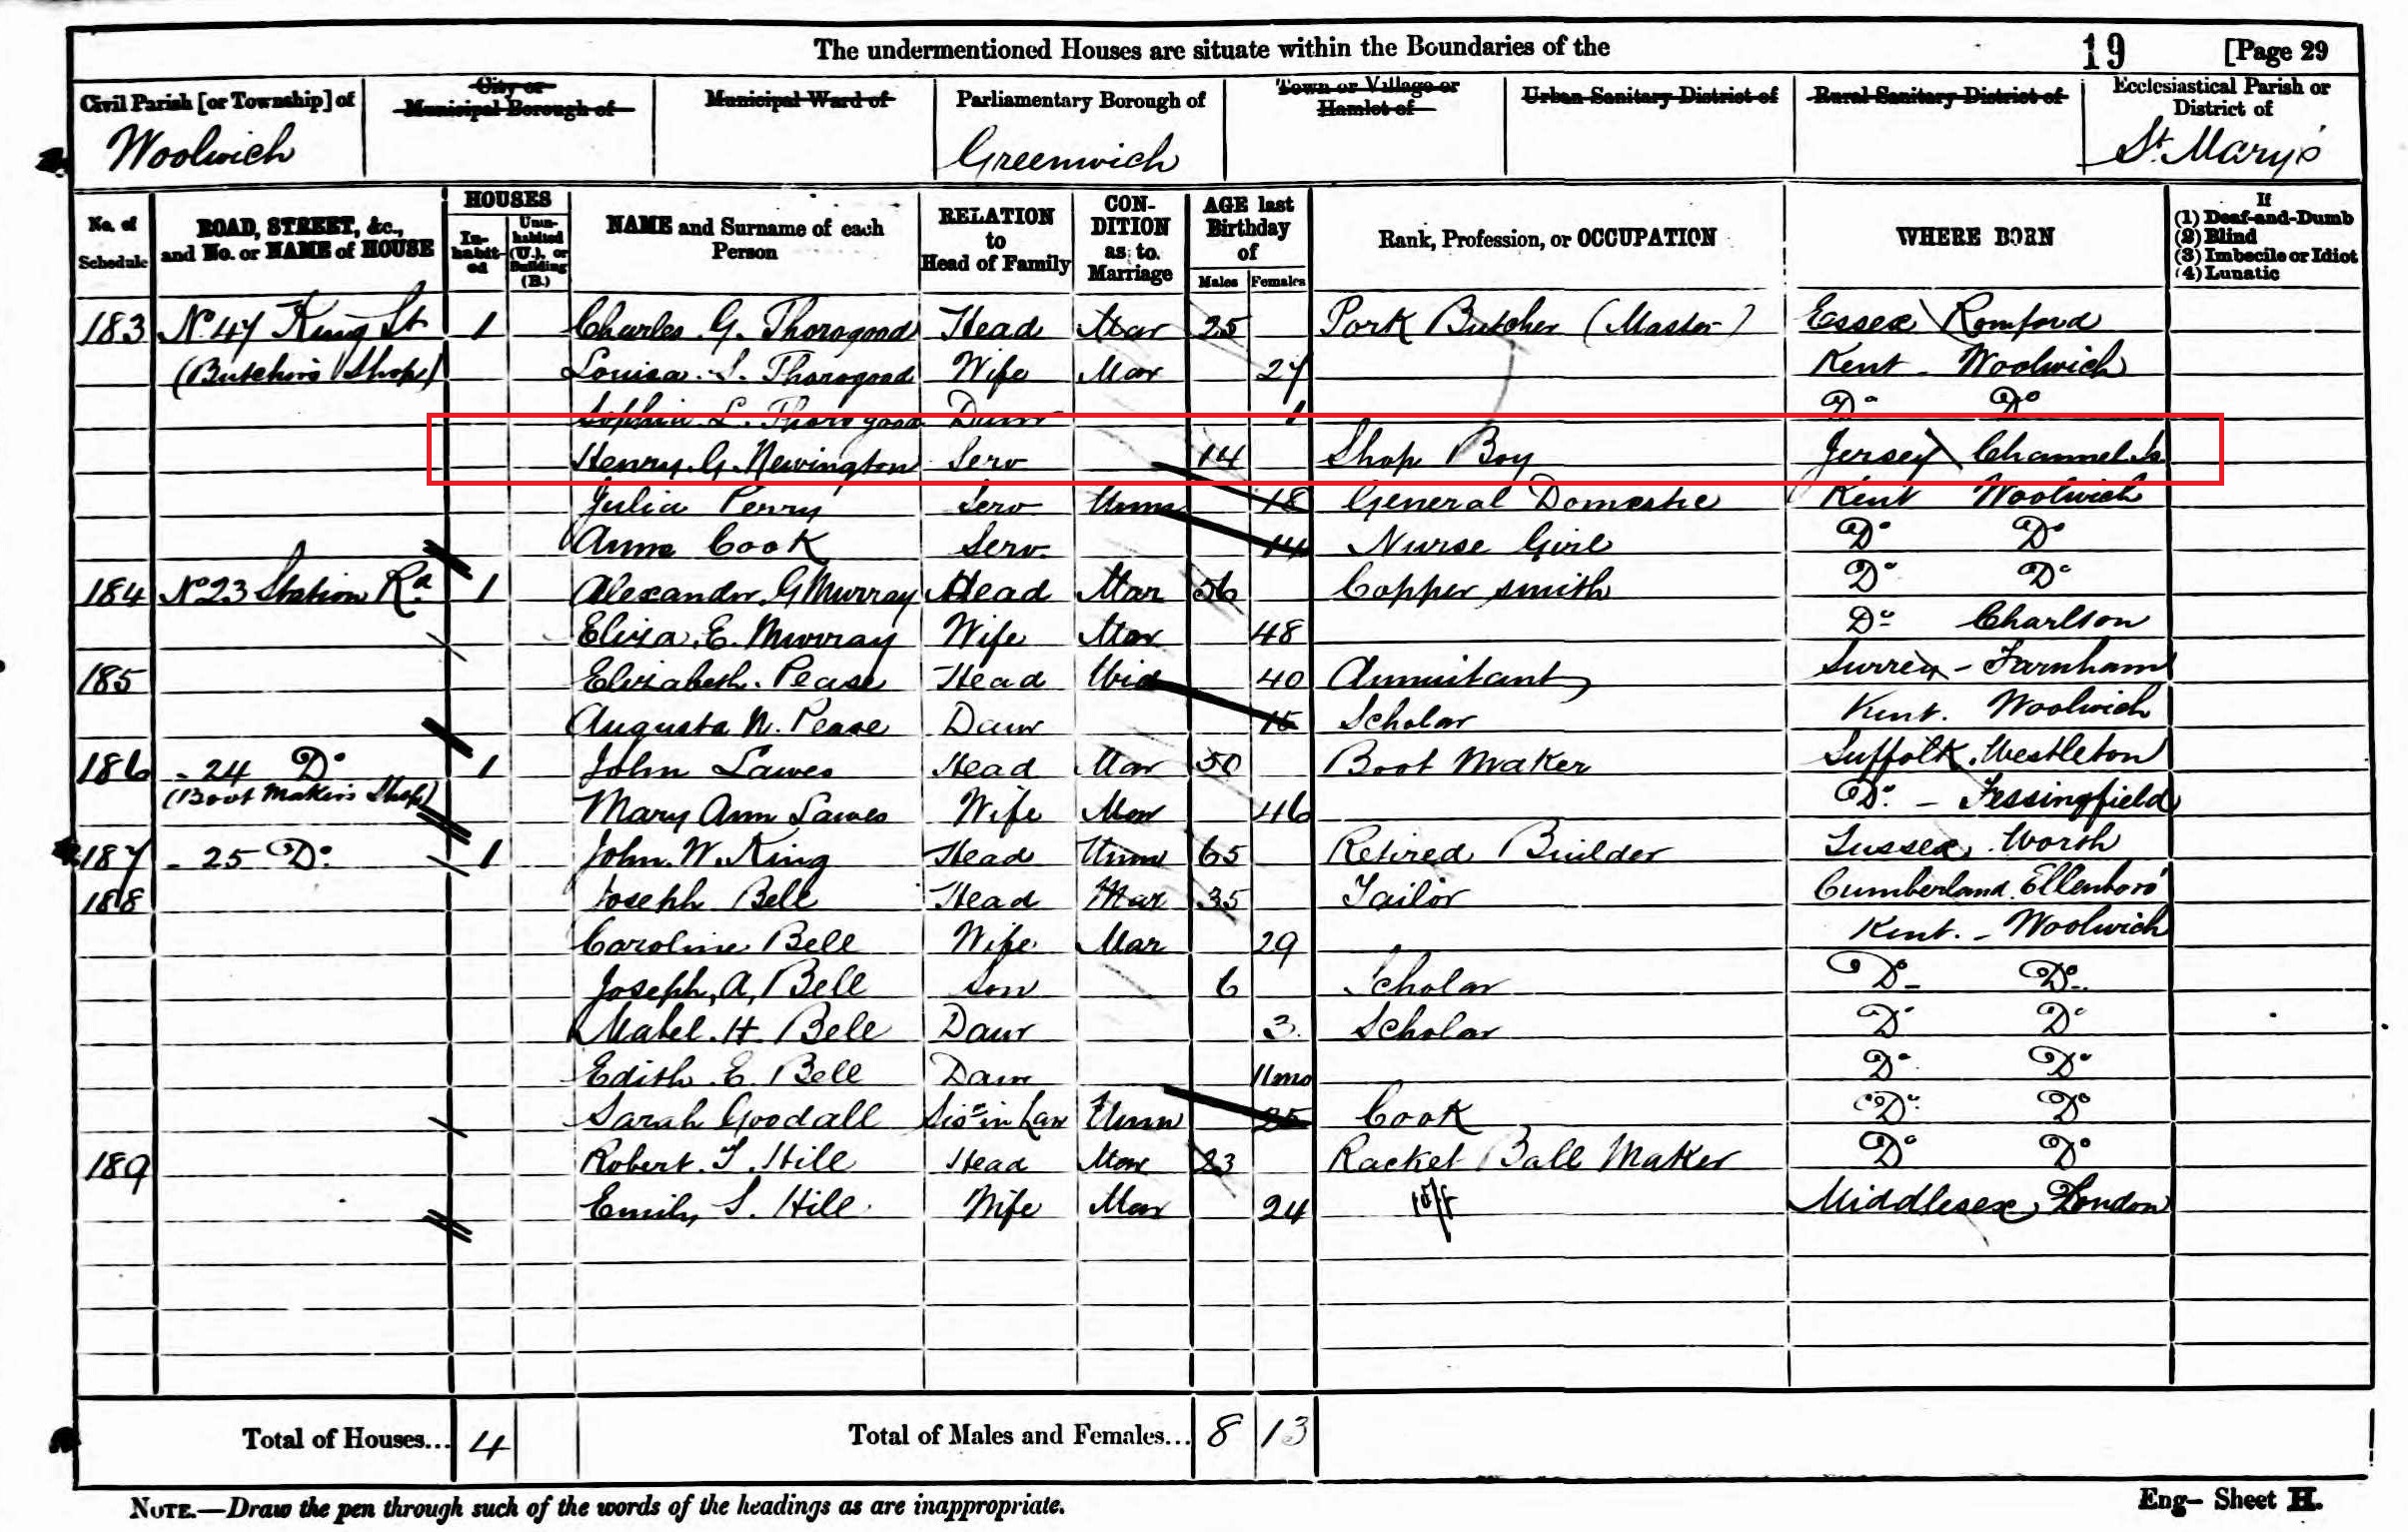 The undermentioned Houses are situate within the Boundaries of the 19 [Page 29
Civil Parish [or Township] of City or Municipal Borough of Municipal Ward of Parliamentary Borough of Town or Village or Hamlet of Urban Sanitary District of Rural Sanitary District of Ecclesiastical Parish or District of
Woolwich Greenwich St. Mary's
No. of Schedule ROAD, STREET, &c., and No. or NAME of HOUSE HOUSES In-habit-ed Unin-habited (U.), or Building (B.) NAME and Surname of each Person RELATION to Head of Family CON-DITION as to Marriage AGE last Birthday of Males Females Rank, Profession, or OCCUPATION WHERE BORN If (1) Deaf-and-Dumb (2) Blind (3) Imbecile or Idiot (4) Lunatic
183 No. 47 King St 1 Charles G. Thorogood Head Mar 25 Pork Butcher (Master) Essex Romford
(Butcher's Shop) Louisa. S. Thorogood Wife Mar 27 Kent - Woolwich
Sophia L. Thorogood Daur 1 Do Do
Henry. G. Newington Serv 14 Shop Boy Jersey Channel Is.
Julia Perry Serv Unm 18 General Domestic Kent Woolwich
Anne Cook Serv. 14 Nurse Girl Do Do
184 No 23 Station Rd. 1 Alexander. G Murray Head Mar 56 Copper smith Do Do
Eliza. E. Murray Wife Mar 48 Do Charlson
185 Elizabeth. Pease Head Wid 40 Annuitant Surrey - Farnham
Augusta N. Pease Daur 15 Scholar Kent. Woolwich
186 - 24 Do 1 John Lawes Head Mar 50 Boot Maker Suffolk. Westleton
(Boot Maker's Shop) Mary Ann Lawes Wife Mar 46 Do. - Fressingfield
187 - 25 Do. 1 John. W. King Head Unm 65 Retired Builder Sussex. Worth
188 Joseph Bell Head Mar 35 Tailor Cumberland. Ellenboro'
Caroline Bell Wife Mar 29 Kent. - Woolwich
Joseph, A, Bell Son 6 Scholar Do Do
Mabel. H. Bell Daur 3. Scholar Do Do
Edith. E. Bell Daur 11mo Do Do
Sarah Goodall Sisr in Law Unm 25 Cook Do Do
189 Robert. T. Hill Head Mar 23 Racket Ball Maker Do Do
Emily S. Hill Wife Mar 24 Middlesex, London
Total of Houses... 4 Total of Males and Females... 8 13
NOTE.—Draw the pen through such of the words of the headings as are inappropriate. Eng— Sheet H.